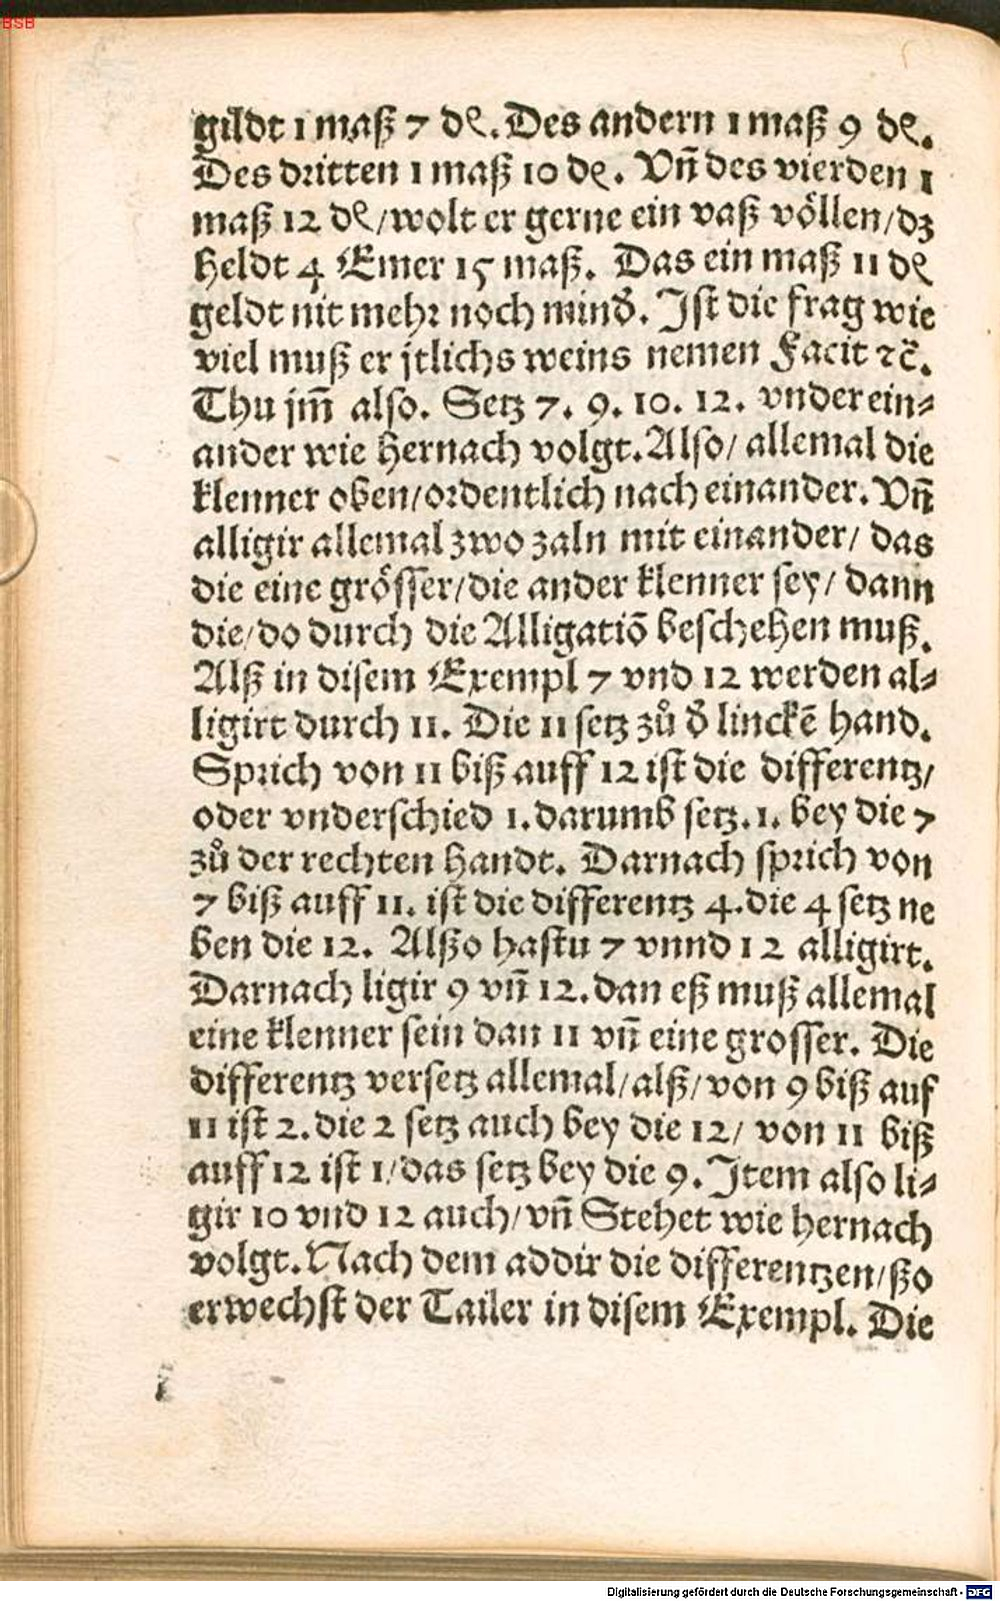 BSB
gildt 1 maß 7 dꝭ. Des andern 1 maß 9 dꝭ.
Des dritten 1 maß 10 dꝭ. Vñ des vierden 1
maß 12 dꝭ/wolt er gerne ein vaß völlen/dz
heldt 4 Emer 15 maß. Das ein maß 11 dꝭ
geldt nit mehr noch mind̕. Ist die frag wie
viel muß er jtlichs weins nemen Facit ⁊c̃.
Thu jm̃ also. Setz 7. 9. 10. 12. vnder ein⸗
ander wie hernach volgt. Also/ allemal die
klenner oben/ordentlich nach einander. Vñ
alligir allemal zwo zaln mit einander/ das
die eine grösser/die ander klenner sey/ dann
die/do durch die Alligatiõ beschehen muß.
Alß in disem Exempl 7 vnd 12 werden al⸗
ligirt durch 11. Die 11 setz zů d̕ linckẽ hand.
Sprich von 11 biß auff 12 ist die differentz/
oder vnderschied 1. darumb setz. 1. bey die 7
zů der rechten handt. Darnach sprich von
7 biß auff 11. ist die differentz 4. die 4 setz ne
ben die 12. Alßo hastu 7 vnnd 12 alligirt.
Darnach ligir 9 vñ 12. dan eß muß allemal
eine klenner sein dan 11 vñ eine grosser. Die
differentz versetz allemal/alß/von 9 biß auf
11 ist 2. die 2 setz auch bey die 12/ von 11 biß
auff 12 ist 1/das setz bey die 9. Item also li⸗
gir 10 vnd 12 auch/vñ Stehet wie hernach
volgt. Nach dem addir die differentzen/ßo
erwechst der Tailer in disem Exempl. Die
Digitalisierung gefördert durch die Deutsche Forschungsgemeinschaft - DFG